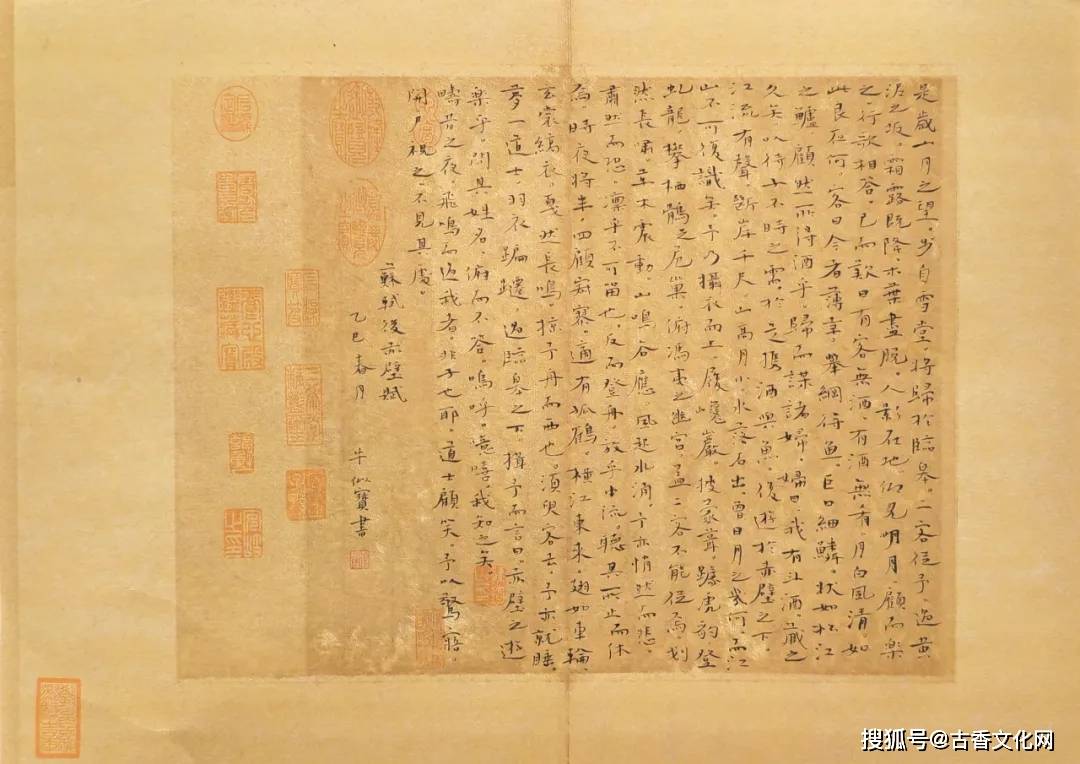 是歲十月之望，步自雪堂，將歸於臨皋。二客從予，過黃
泥之坂。霜露既降，木葉盡脫，人影在地，仰見明月，顧而樂
之，行歌相答。已而歎曰有客無酒，有酒無肴，月白風清，如
此良夜何。客曰今者薄暮，舉網得魚，巨口細鱗，狀如松江
之鱸，顧然所得酒乎。歸而謀諸婦，婦曰，我有斗酒，藏之
久矣，以待子不時之需。於是攜酒與魚，復遊於赤壁之下。
江流有聲，斷岸千尺，山高月小，水落石出，曾日月之幾何，而江
山不可復識矣。予乃攝衣而上，履巉巖，披蒙茸，踞虎豹，登
虬龍，攀栖鶻之危巢，俯馮夷之幽宮，蓋二客不能從焉。劃
然長嘯，草木震動，山鳴谷應，風起水涌，予亦悄然而悲，
肅然而恐，凜乎不可留也。反而登舟，放乎中流，聽其所止而休
焉。時夜將半，四顧寂寥，適有孤鶴，橫江東來，翅如車輪，
玄裳縞衣，戛然長鳴，掠予舟而西也。須臾客去，予亦就睡。
夢一道士，羽衣蹁躚，過臨皋之下，揖予而言曰，赤壁之遊
樂乎。問其姓名，俯而不答。嗚呼，噫嘻，我知之矣，
疇昔之夜，飛鳴而過我者，非子也耶。道士顧笑，予以驚寤。
開戶視之，不見其處。
蘇軾後赤壁賦
乙巳春月 牛似寶書
搜狐号@古香文化网